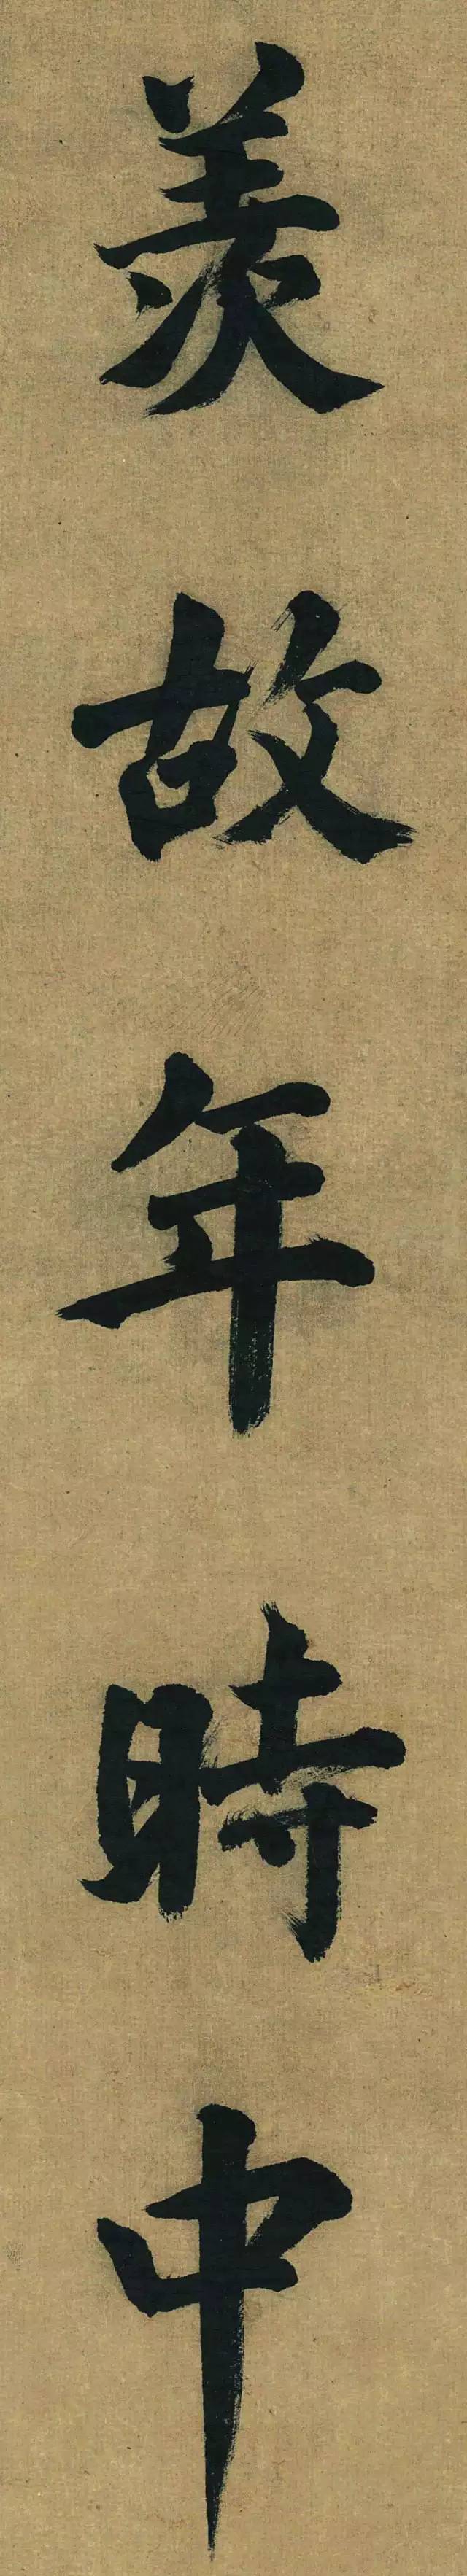 羡故年時中